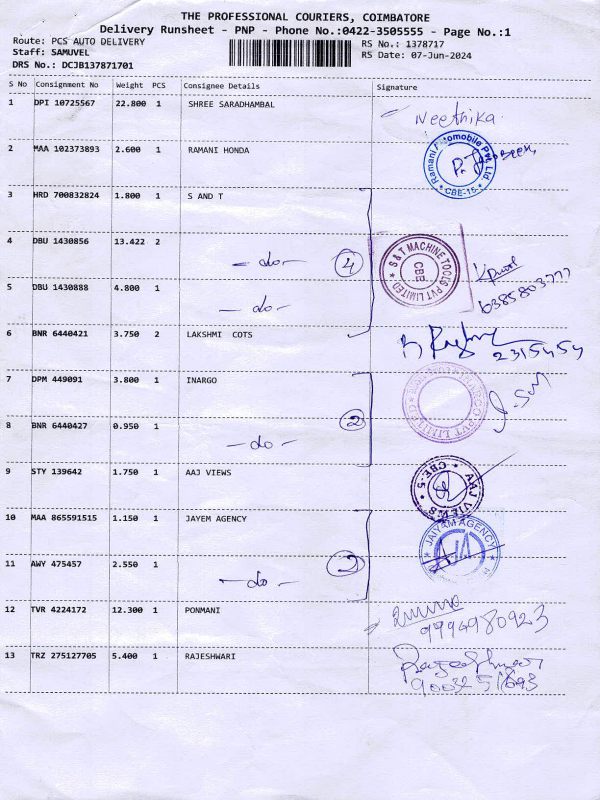 THE PROFESSIONAL COURIERS, COIMBATORE
Delivery Runsheet - PNP - Phone No.:0422-3505555 - Page No.:1
Route: PCS AUTO DELIVERY
RS No.: 1378717
Staff: SAMUVEL
RS Date: 07-Jun-2024
DRS No.: DCJB137871701
S No Consignment No Weight PCS Consignee Details Signature
1 DPI 10725567 22.800 1 SHREE SARADHAMBAL Neethika
2 MAA 102373893 2.600 1 RAMANI HONDA
Ramani Automobile Pvt. Ltd. CBE-15
3 HRD 700832824 1.800 1 S AND T
4 DBU 1430856 13.422 2
- do - 4
S & T MACHINE TOOLS PVT LIMITED CBE
5 DBU 1430888 4.800 1
- do -
6385803777
6 BNR 6440421 3.750 2 LAKSHMI COTS
2315454
7 DPM 449091 3.800 1 INARGO
8 BNR 6440427 0.950 1
- do - 2
PVT LIMITED
9 STY 139642 1.750 1 AAJ VIEWS
AAJ VIEWS CBE-5
10 MAA 865591515 1.150 1 JAYEM AGENCY
JAIYAM AGENCY
11 AWY 475457 2.550 1
- do - 2
12 TVR 4224172 12.300 1 PONMANI
9994980923
13 TRZ 275127705 5.400 1 RAJESHWARI